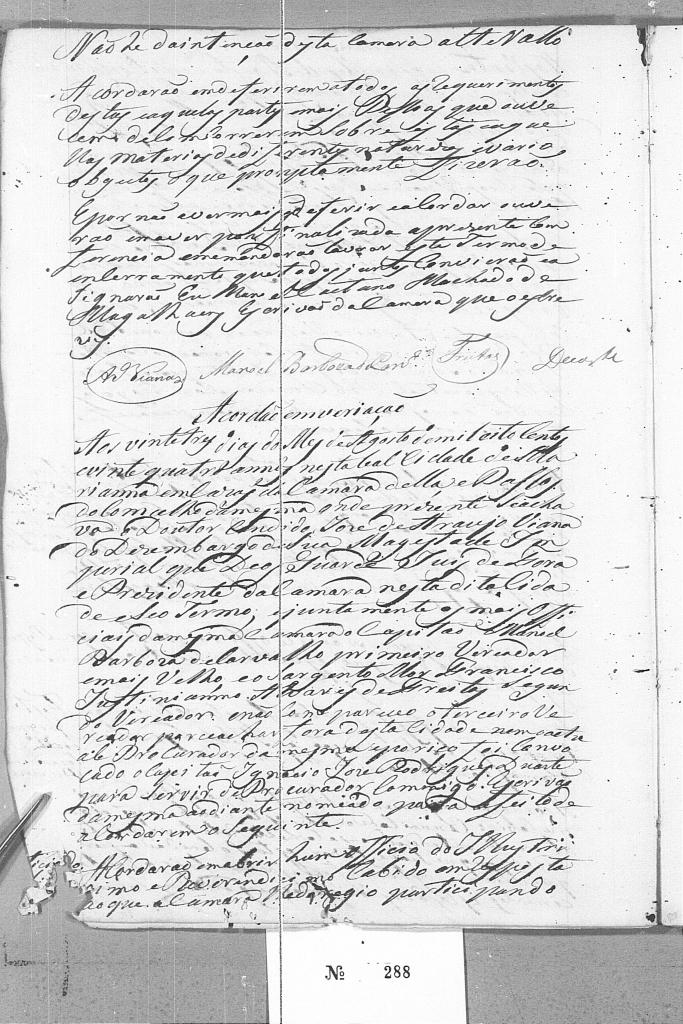 Não he da intenção desta Camera alte Nallo
Acordarão em deferirem a todos os Requerimentos
destas e aquelas partes mais Pessoas que ouve
rem de lem correrem sobre estas e aque
llas materias de diferentes naturezas e vario
obgetos o que promptamente Fizerão.
E por não aver mais que deferir e acordar ouve
rão em aver por finalizada a prezente Com
ferencia e mandarão lavrar este Termo de
emserramento que todos juntos Comvierão e a
signarão Eu Manoel Caetano Machado de
Magalhaens Escrivão da Camera que o escre
vy.
Ar.º Vianna Manoel Barboza de Carv.º Freitas Duarte
Acordão em veriação
Aos vinte tres dias do Mes de Agosto de mil oito centos
e vinte quatro annos nesta leal Cidade de Ma
rianna em Cazas da Camara della e Passos
do Concelho da mesma onde prezente se acha
va o Doutor Candido Joze de Araujo Viana
do Dezembargo de Sua Magestade Im
perial que Deos Guarde Juis de Fora
e Prezidente da Camara nesta dita Cida
de e Seo Termo, e juntamente os mais Offi
ciais da mesma Camara o Capitão Manoel
Barboza de Carvalho primeiro Vereador
e mais Velho e o Sargento Mor Francisco
Justinianno Alvares de Freitas Segun
do Vereador, e não com pareceo o terceiro Ve
reador por se achar fora desta Cidade nem o actu
al e Procurador da mesma e por isso foi Convo
cado o Capitão Ignacio Joze Rodrigues Duarte
para servir de Procurador Comigo Escrivão
da mesma ao diante nomeado para effeito de
acordarem o Seguinte.
Acordarão em abrir hum officio do Illustri
ssimo e Reverendissimo Cabido em Resposta
ao que a Camara lhe dirigio participando
Nº 288